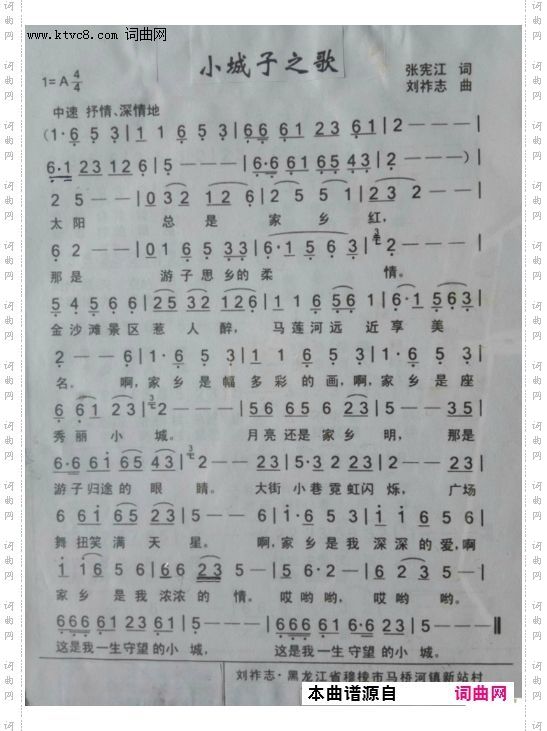 www.ktvc8.com 词曲网
小城子之歌
1=A 4/4
张宪江 词
刘祚志 曲
中速 抒情、深情地
(1·6 5 3 | 1 1 6 5 3 | 66 61 23 61 | 2 — — — |
6·1 23 126 | 5 — — — | 6·6 61 65 43 | 2 — — —) |
2 5 — — | 032 126 | 2 5 5 1 | 232 — — |
太阳 总是家乡红,
6 2 — — | 01 65 33 | 6·1 5 6 3 | 2 — — — |
那是 游子思乡的柔情。
54 56 5 | 25 32 126 | 1 1 6 56 | 6· 1 5 63 |
金沙滩景区惹人醉, 马莲河远近享美
2 — — 6 | 1· 6 5 3 | 1· 6 5 3 | 1· 6 5 3 |
名。 啊,家乡是幅多彩的画,啊,家乡是座
6 61 23 | 2 — — — | 56 65 23 | 5 — — 35 |
秀丽小城。 月亮还是家乡明, 那是
6·6 61 65 43 | 2 — — 23 | 5· 23 5 23 | 5 — — 23 |
游子归途的眼睛。 大街小巷霓虹闪烁, 广场
6 6i 65 23 | 5 — — 6 | i· 6 5 3 | i· i 6 5 6 |
舞扭笑满天星。 啊,家乡是我深深的爱,啊
i i6 23 5 | 66 6 23 5 | 5 — — — | 6 — — — |
家乡是我浓浓的情。 哎哟哟, 哎哟哟。
666 61 23 | 5 — — — | 666 61 23 | 5 — — — ‖
这是我一生守望的小城, 这是我一生守望的小城。
刘祚志·黑龙江省穆棱市马桥河镇新站村
本曲谱源自 词曲网